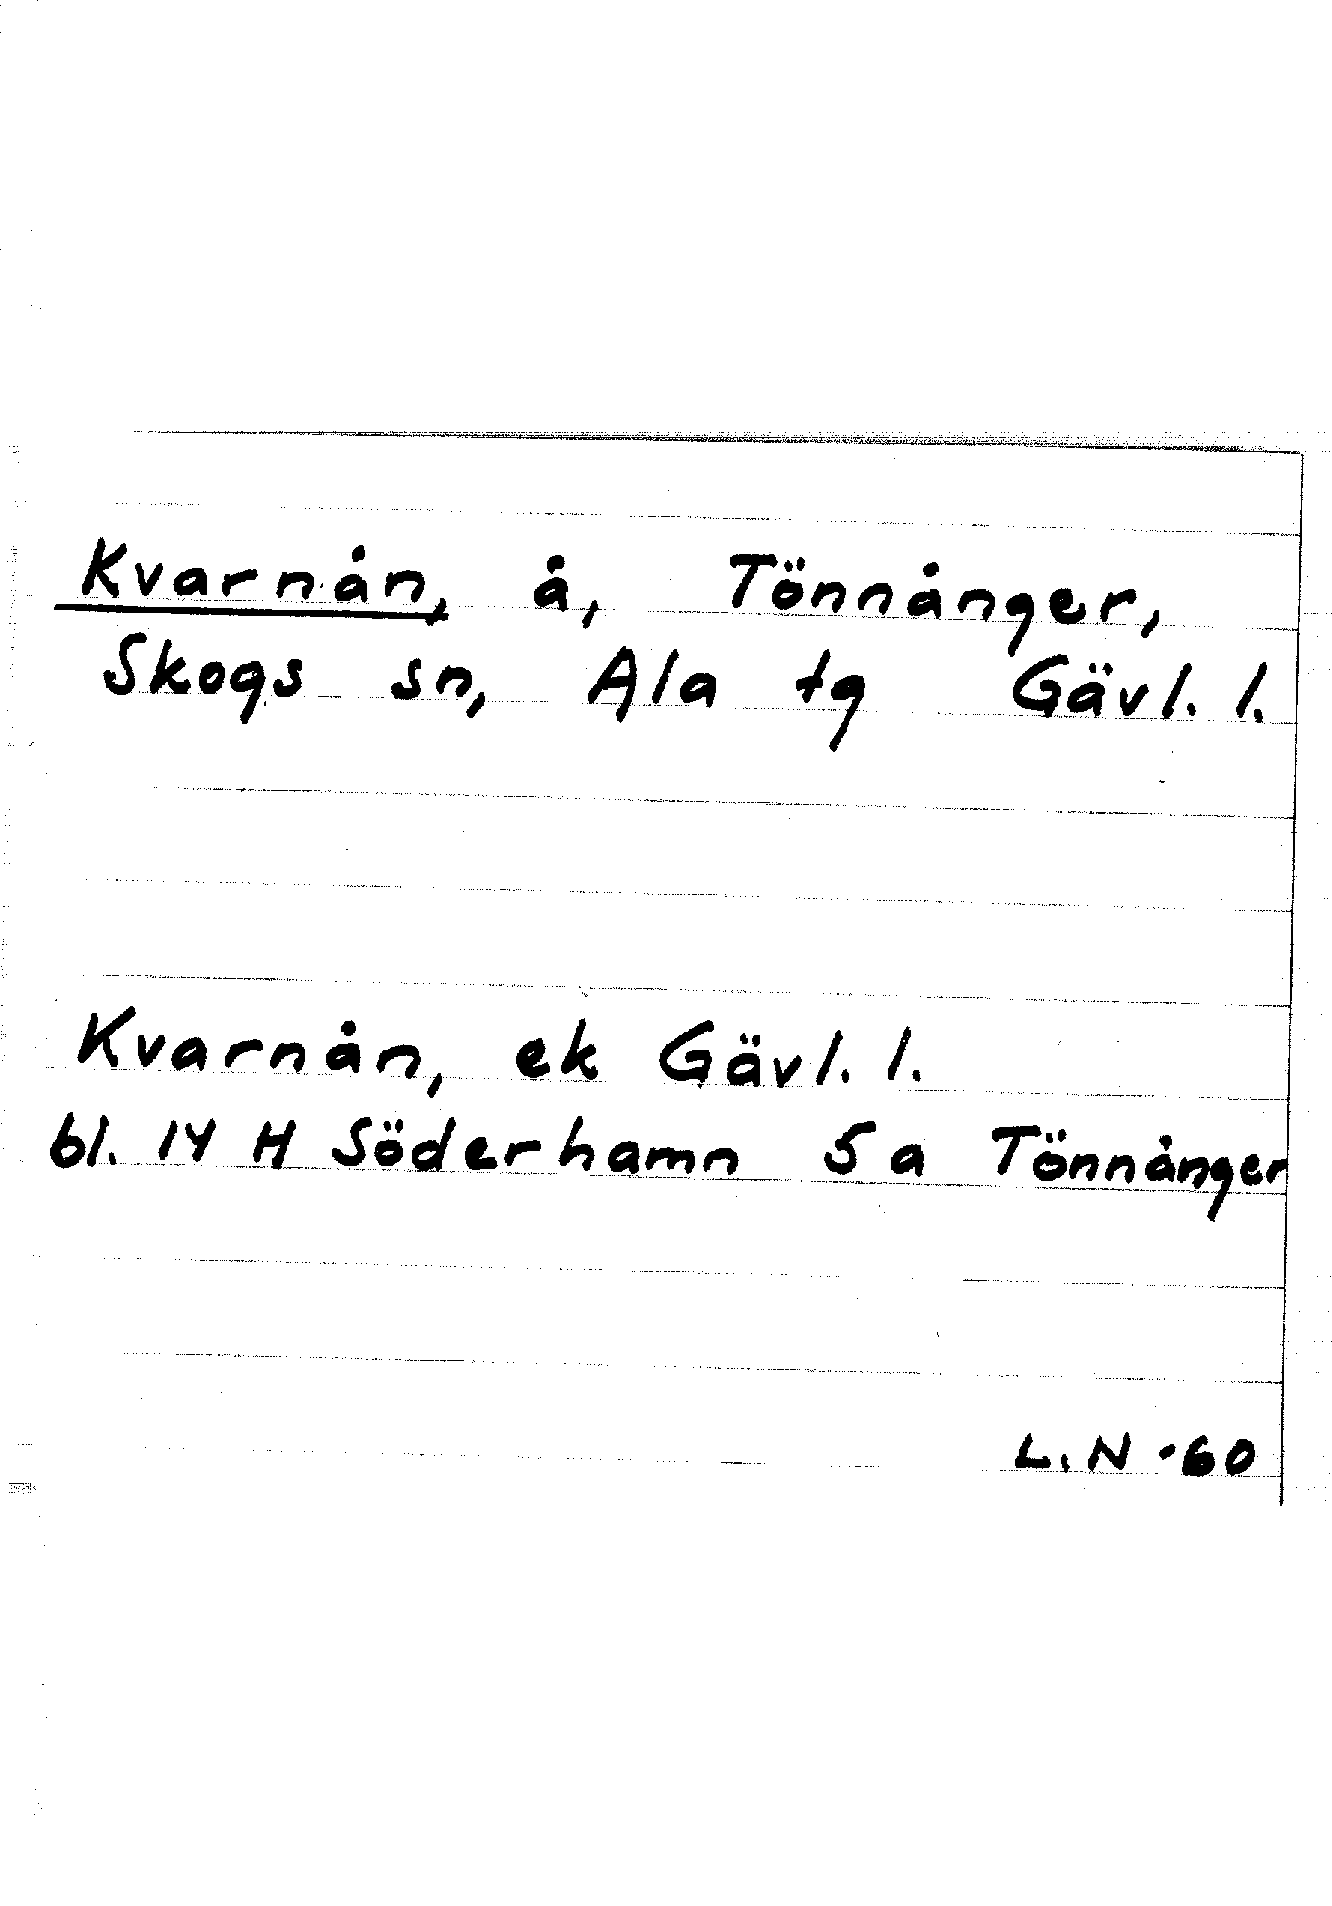 Kvarnån, å, Tönnånger,
Skogs sn, Ala tg Gävl. l.
Kvarnån, ek Gävl. l.
bl. 14 H Söderhamn 5a Tönnånger
L.N -60